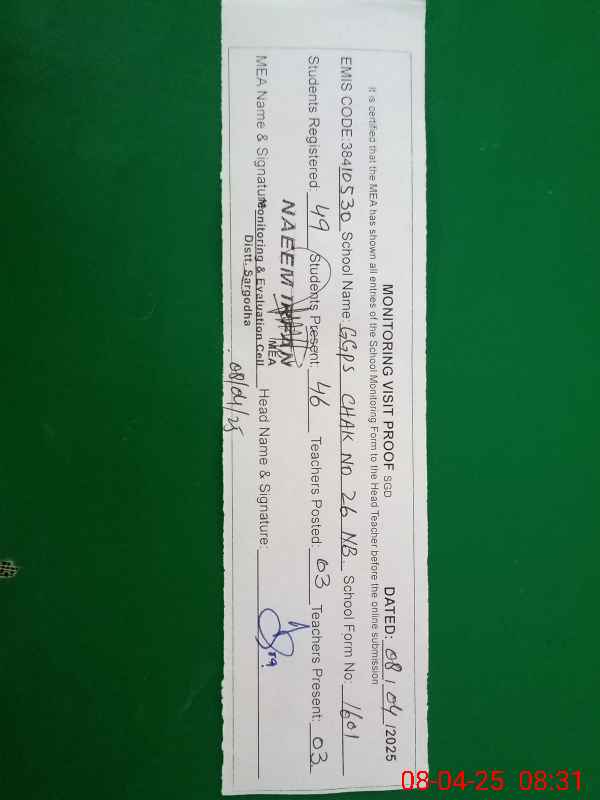 MONITORING VISIT PROOF SGD DATED: 08/04/2025
It is certified that the MEA has shown all entries of the School Monitoring Form to the Head Teacher before the online submission
EMIS CODE:38410530 School Name: GGPS CHAK NO 26 NB. School Form No: 1601
Students Registered: 49 Students Present: 46 Teachers Posted: 03 Teachers Present: 03
NAEEM IRFAN
MEA
MEA Name & Signature Head Name & Signature:
Monitoring & Evaluation Cell
Distt. Sargodha
08/04/25
08-04-25 08:31